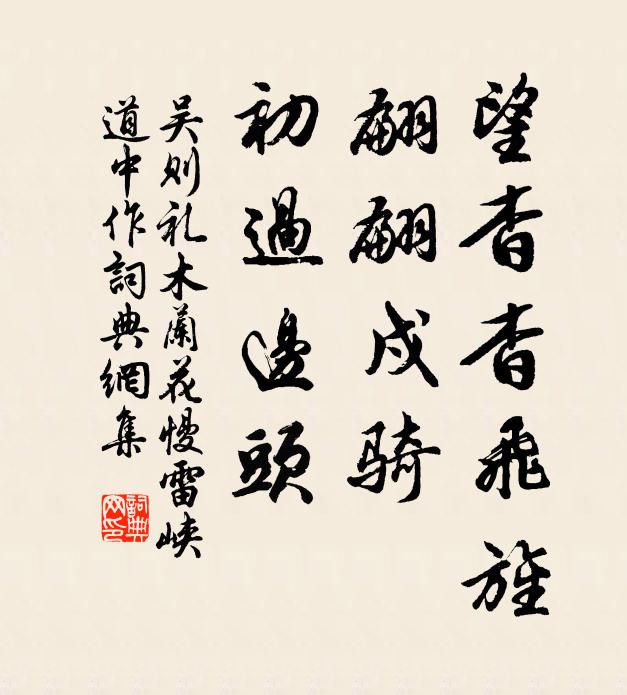 望杳杳飛旌
翩翩戍騎
初過邊頭
吳則礼木蘭花慢雷峽
道中作詞典網集
詞典網印